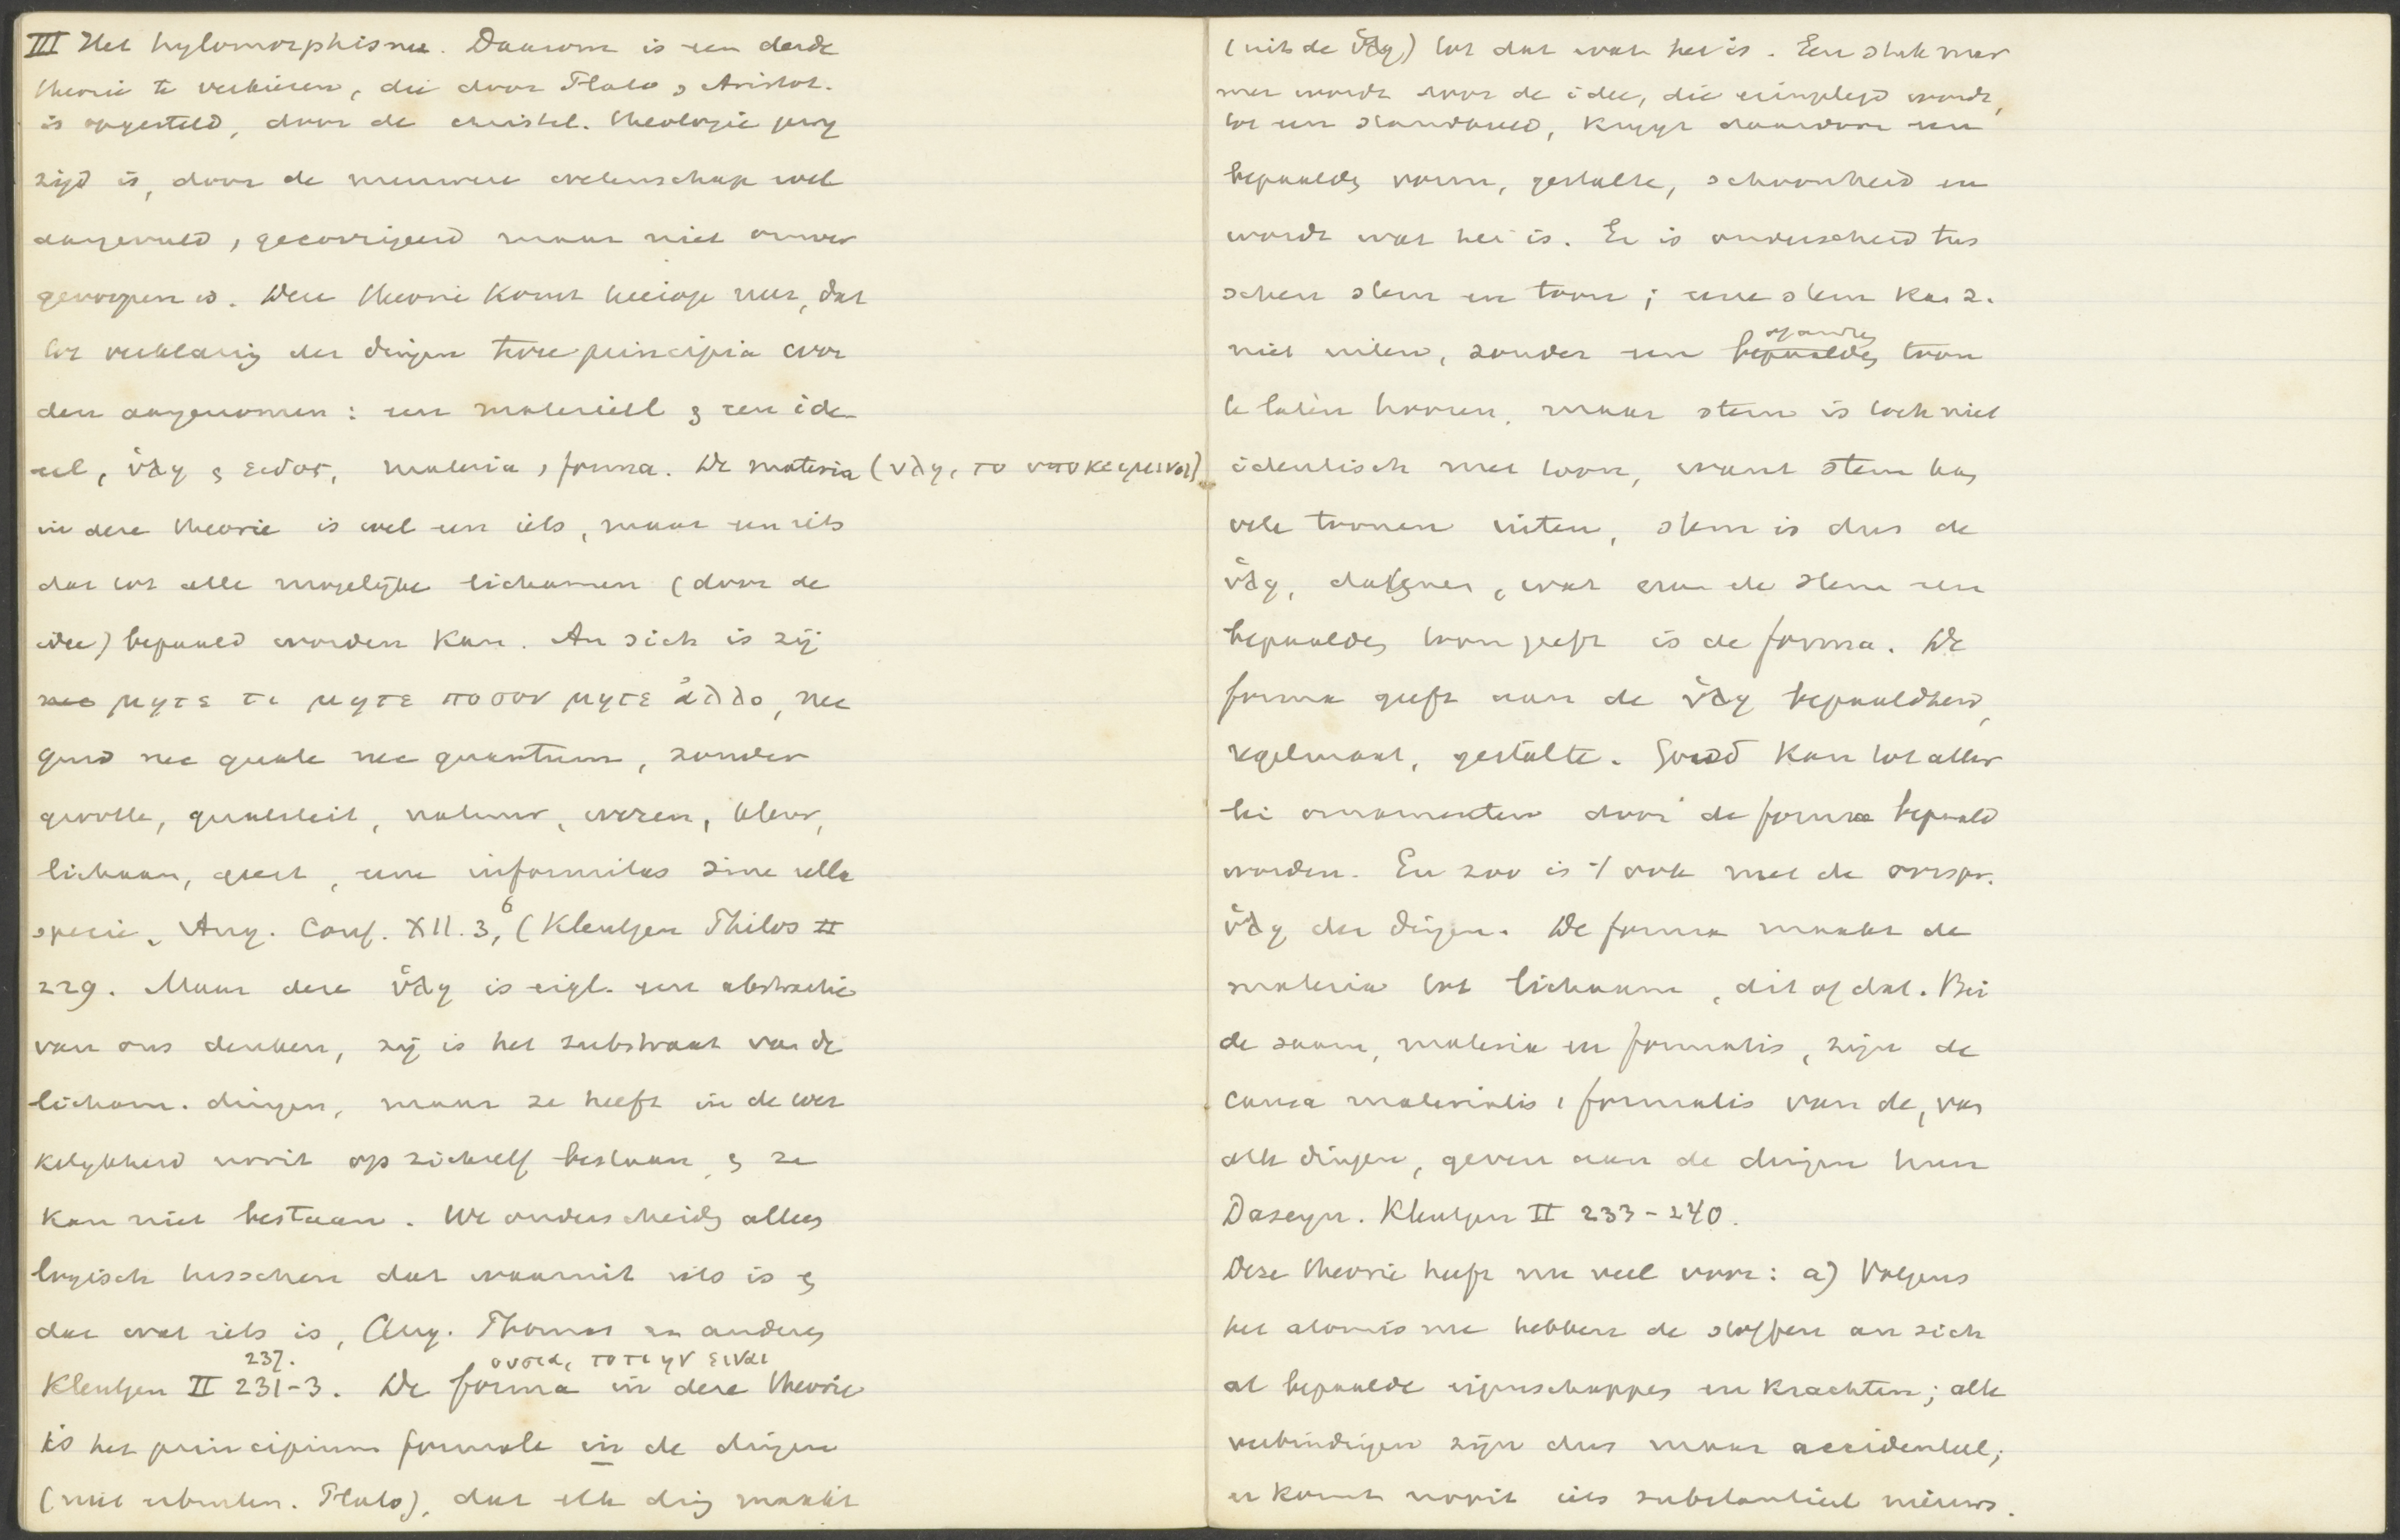 III Het hylomorphisme. Daarom is een derde
theorie te verkiezen, die door Plato & Aristot.
is opgesteld, door de christel. theologie gewy
zigd is, door de nieuwere wetenschap wel
aangevuld, gecorrigeerd maar niet omver
geworpen is. Deze theorie komt hierop neer, dat
tot verklaring der dingen twee principia wor
den aangenomen: een materieel & een ide-
eel, ὕλη & ειδος, materia & forma. De materia (υλη, το υποκειμενον)
in deze theorie is wel een iets, maar een iets
dat tot alle mogelijke lichamen (door de
idee) bepaald worden kan. An sich is zij
nec μητε τι μητε ποσον μητε ἀλλο, nec
quid nec quale nec quantum, zonder
grootte, qualiteit, natuur, wezen, kleur,
lichaam, geest, een informitas sine ulla
specie, Aug. Conf. XII. 3, 6 (Kleutgen Philos II
229. Maar deze ὕλη is eigl. een abstractie
van ons denken, zij is het substraat van de
licham. dingen, maar ze heeft in de wer
kelykheid nooit op zichzelf bestaan & ze
kan niet bestaan. We onderscheiden alleen
logisch tusschen dat waaruit iets is &
dat wat iets is, Aug. Thomas en anderen
237. ουσια, το τι ην ειναι
Kleutgen II 231-3. De forma in deze theorie
is het principium formale in de dingen
(niet erbuiten. Plato), dat elk ding maakt
(uit de ὕλη) tot dat wat het is. Een stuk mar
mer wordt door de idee, die wordt,
tot een standbeeld, krygt daardoor een
bepaalden vorm, gestalte, schoonheid en
wordt wat het is. Er is onderscheid tus
schen stem en toon; eene stem kan z.
niet uiten, zonder een bepaalden of anderen toon
te laten hooren, maar stem is toch niet
identisch met toon, want stem kan
vele tonen uiten, stem is dus de
ὕλη, datgene, wat aan de stem een
bepaalden toon geeft is de forma. De
forma geeft aan de ὕλη bepaaldheid,
regelmaat, gestalte. Goud kan tot aller
lei ornamenten door de forma bepaald
worden. En zoo is 't ook met de oorspr.
ὕλη der dingen. De forma maakt de
materia tot lichaam, dit of dat. Bei
de saam, materia en formalis, zijn de
causa materialis & formalis van de, van
alle dingen, geven aan de dingen hun
Daseyn. Kleutgen II 233-240.
Deze theorie heeft nu veel voor: a) Volgens
het atomisme hebben de stoffen an sich
al bepaalde eigenschappen en krachten; alle
verbindingen zijn dus maar accidenteel;
er komt nooit iets substantieel nieuws.